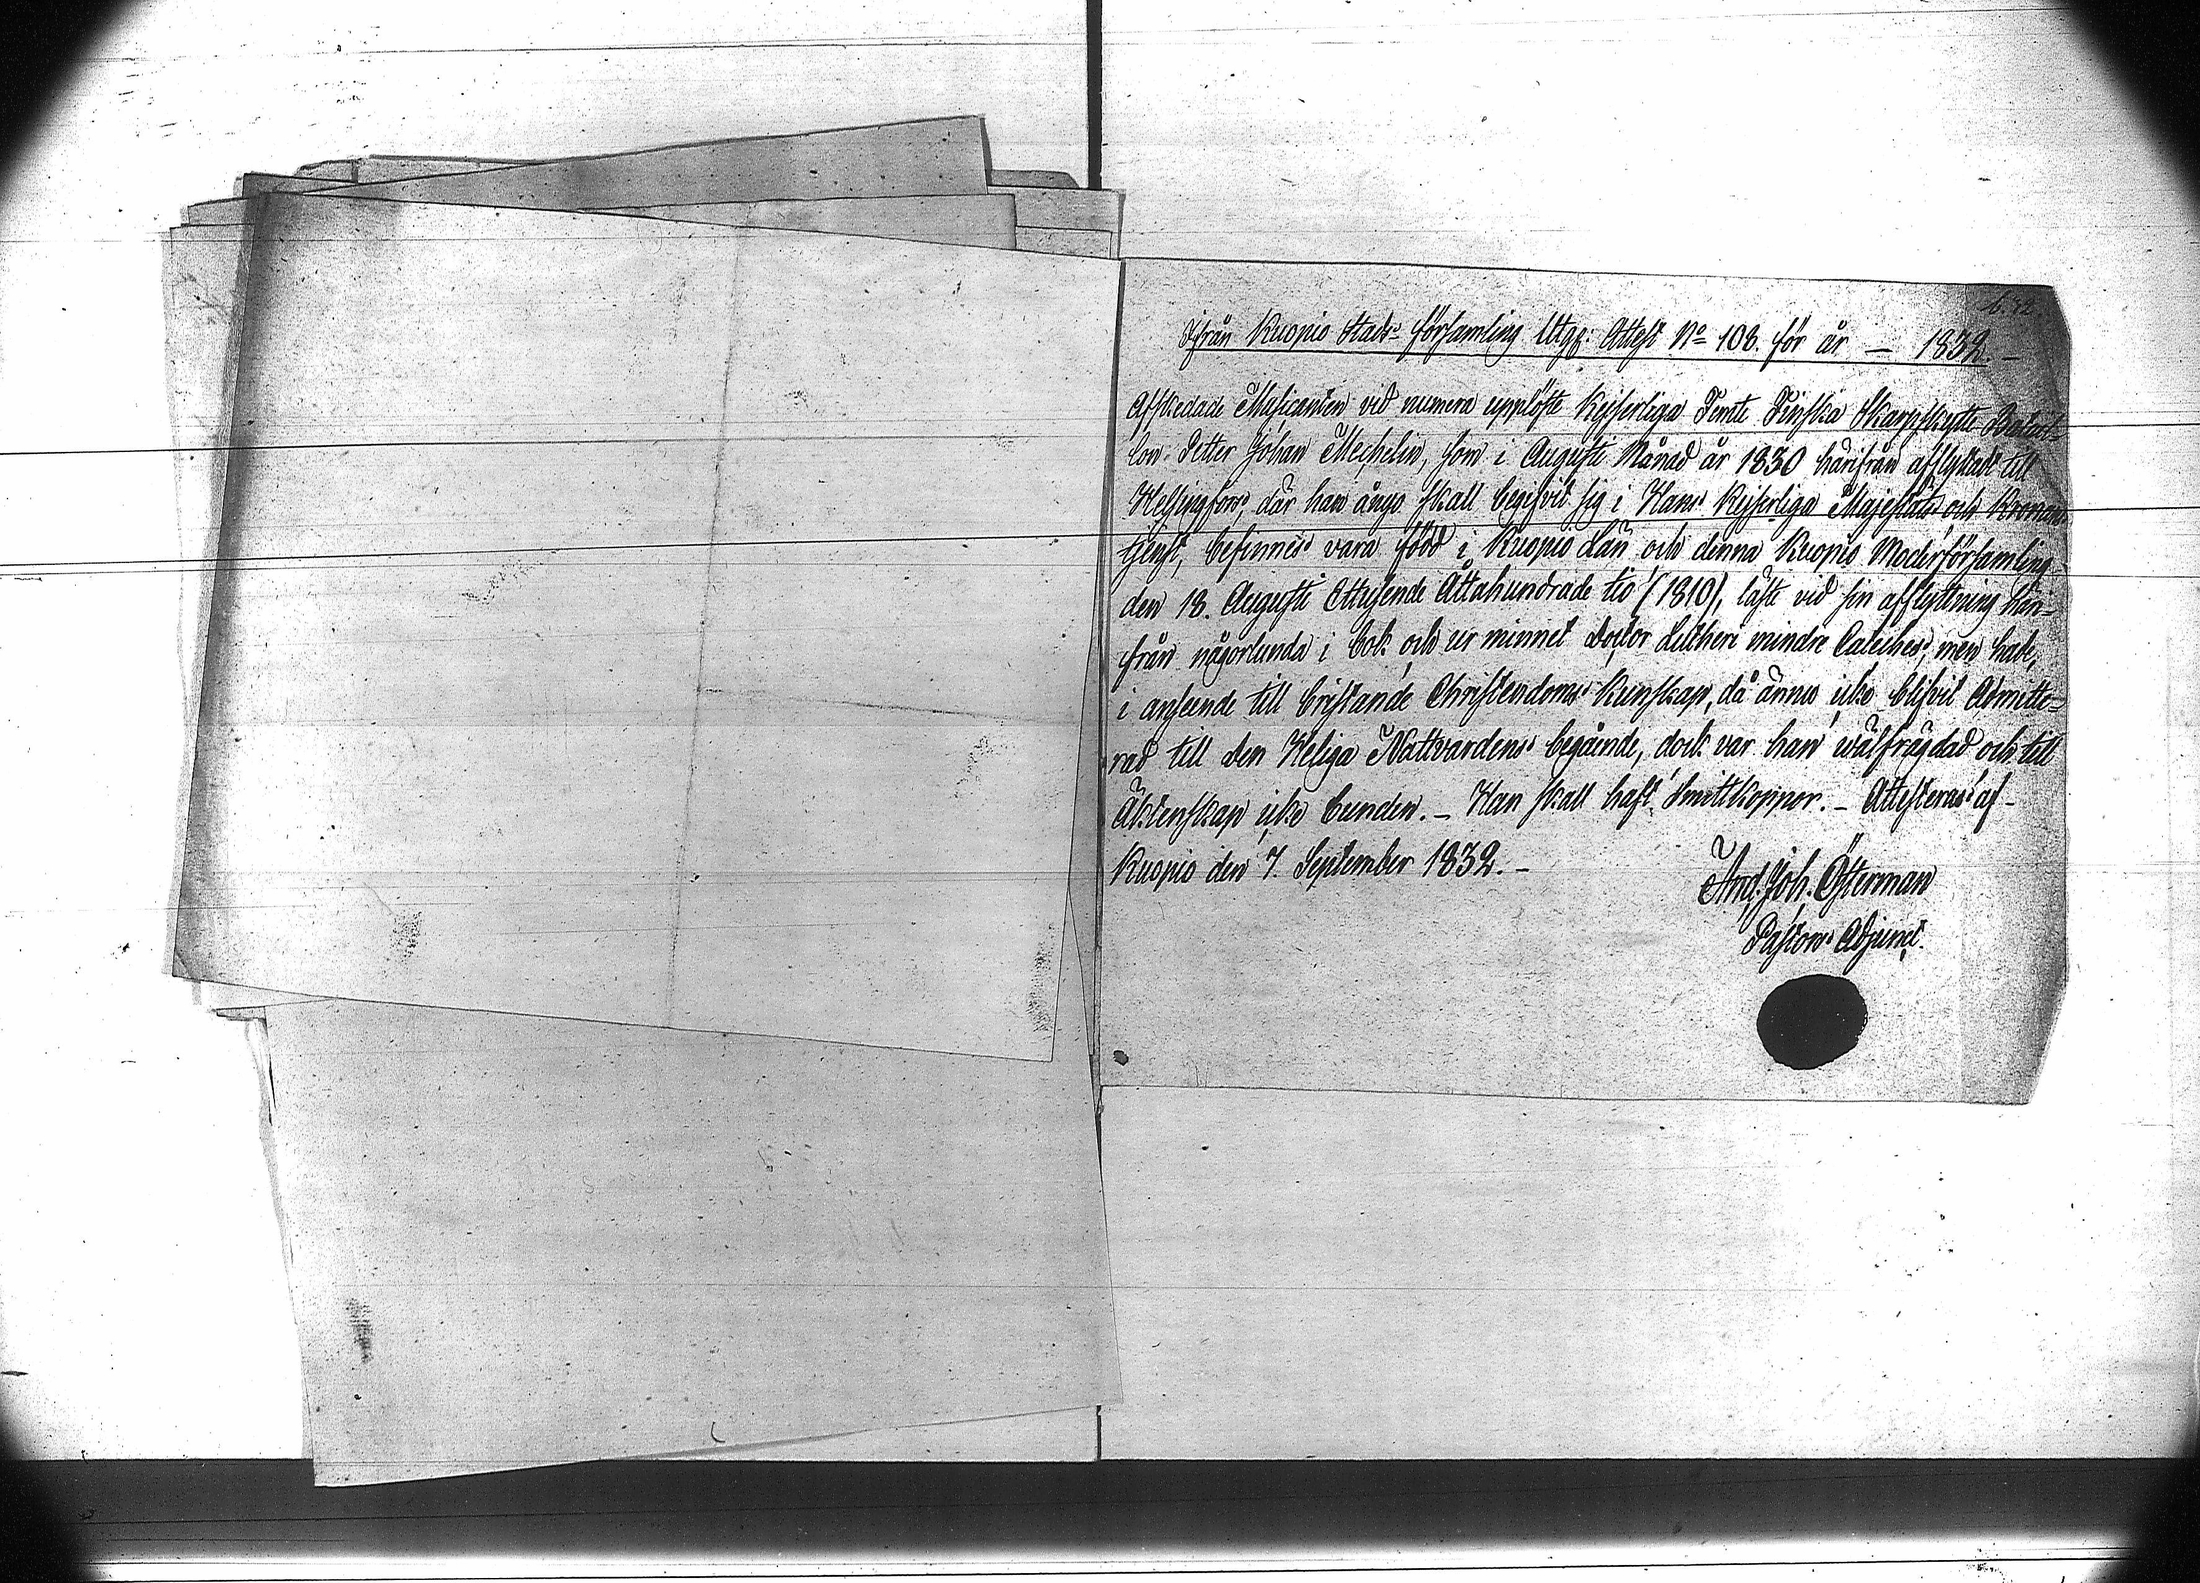 Ifrån Kuopio Stads församling Utgf: Attest No 108. för år — 1832. —
Afskedade Musicanten vid numera upplöste Kejserliga Femte Finska Skarpskytte Batail-
lon Petter Johan Mechelin, som i Augusti Månad år 1830 härifrån afflyttadt till
Helsingfors, där han ånyo skall begifvit sig i Hans Kejserliga Majestäts och Kronans
tjenst, befinnes vara född i Kuopio Län och denna Kuopio Moderförsamling
den 18. Augusti Ettusende Åttahundrade tio (1810), läste vid sin afflyttning här-
ifrån någorlunda i bok och ur minnet Doctor Lutheri mindre Cateches, men hade,
i anseende till bristande Christendoms Kunskap, då ännu icke blifvit Admitte-
rad till den Heliga Nattvardens begående, dock var han wälfrägdad och till
Äktenskap icke bunden. — Han skall haft Smittkoppor. — Attesteras af —
Kuopio den 7. September 1832. —
And. Joh. Österman
Pastors Adjunct.